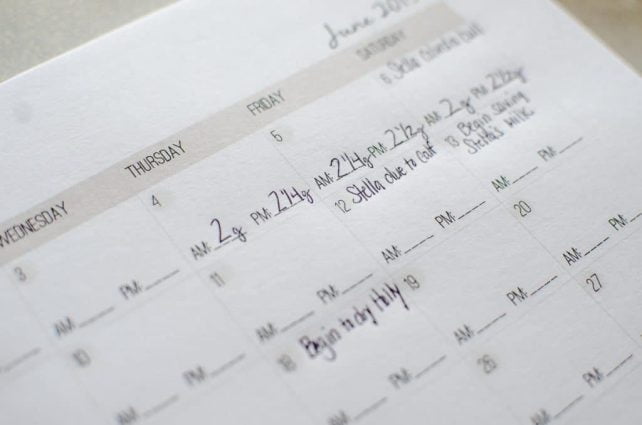 June
WEDNESDAY THURSDAY FRIDAY SATURDAY
3
AM: ____ PM: ____
4
AM: 2g PM: 2 1/4g
5
AM: 2 1/4g PM: 2 1/2g
6 Stella
AM: 2g PM: 2 1/2g
10
AM: ____ PM: ____
11
AM: ____ PM: ____
12 Stella due to Calf
AM: ____ PM: ____
13 Begin saving
Stella's milk
AM: ____ PM: ____
18 Begin to dry Holly
AM: ____ PM: ____
19
AM: ____ PM: ____
20
AM: ____ PM:
26
AM: ____ PM: ____
27